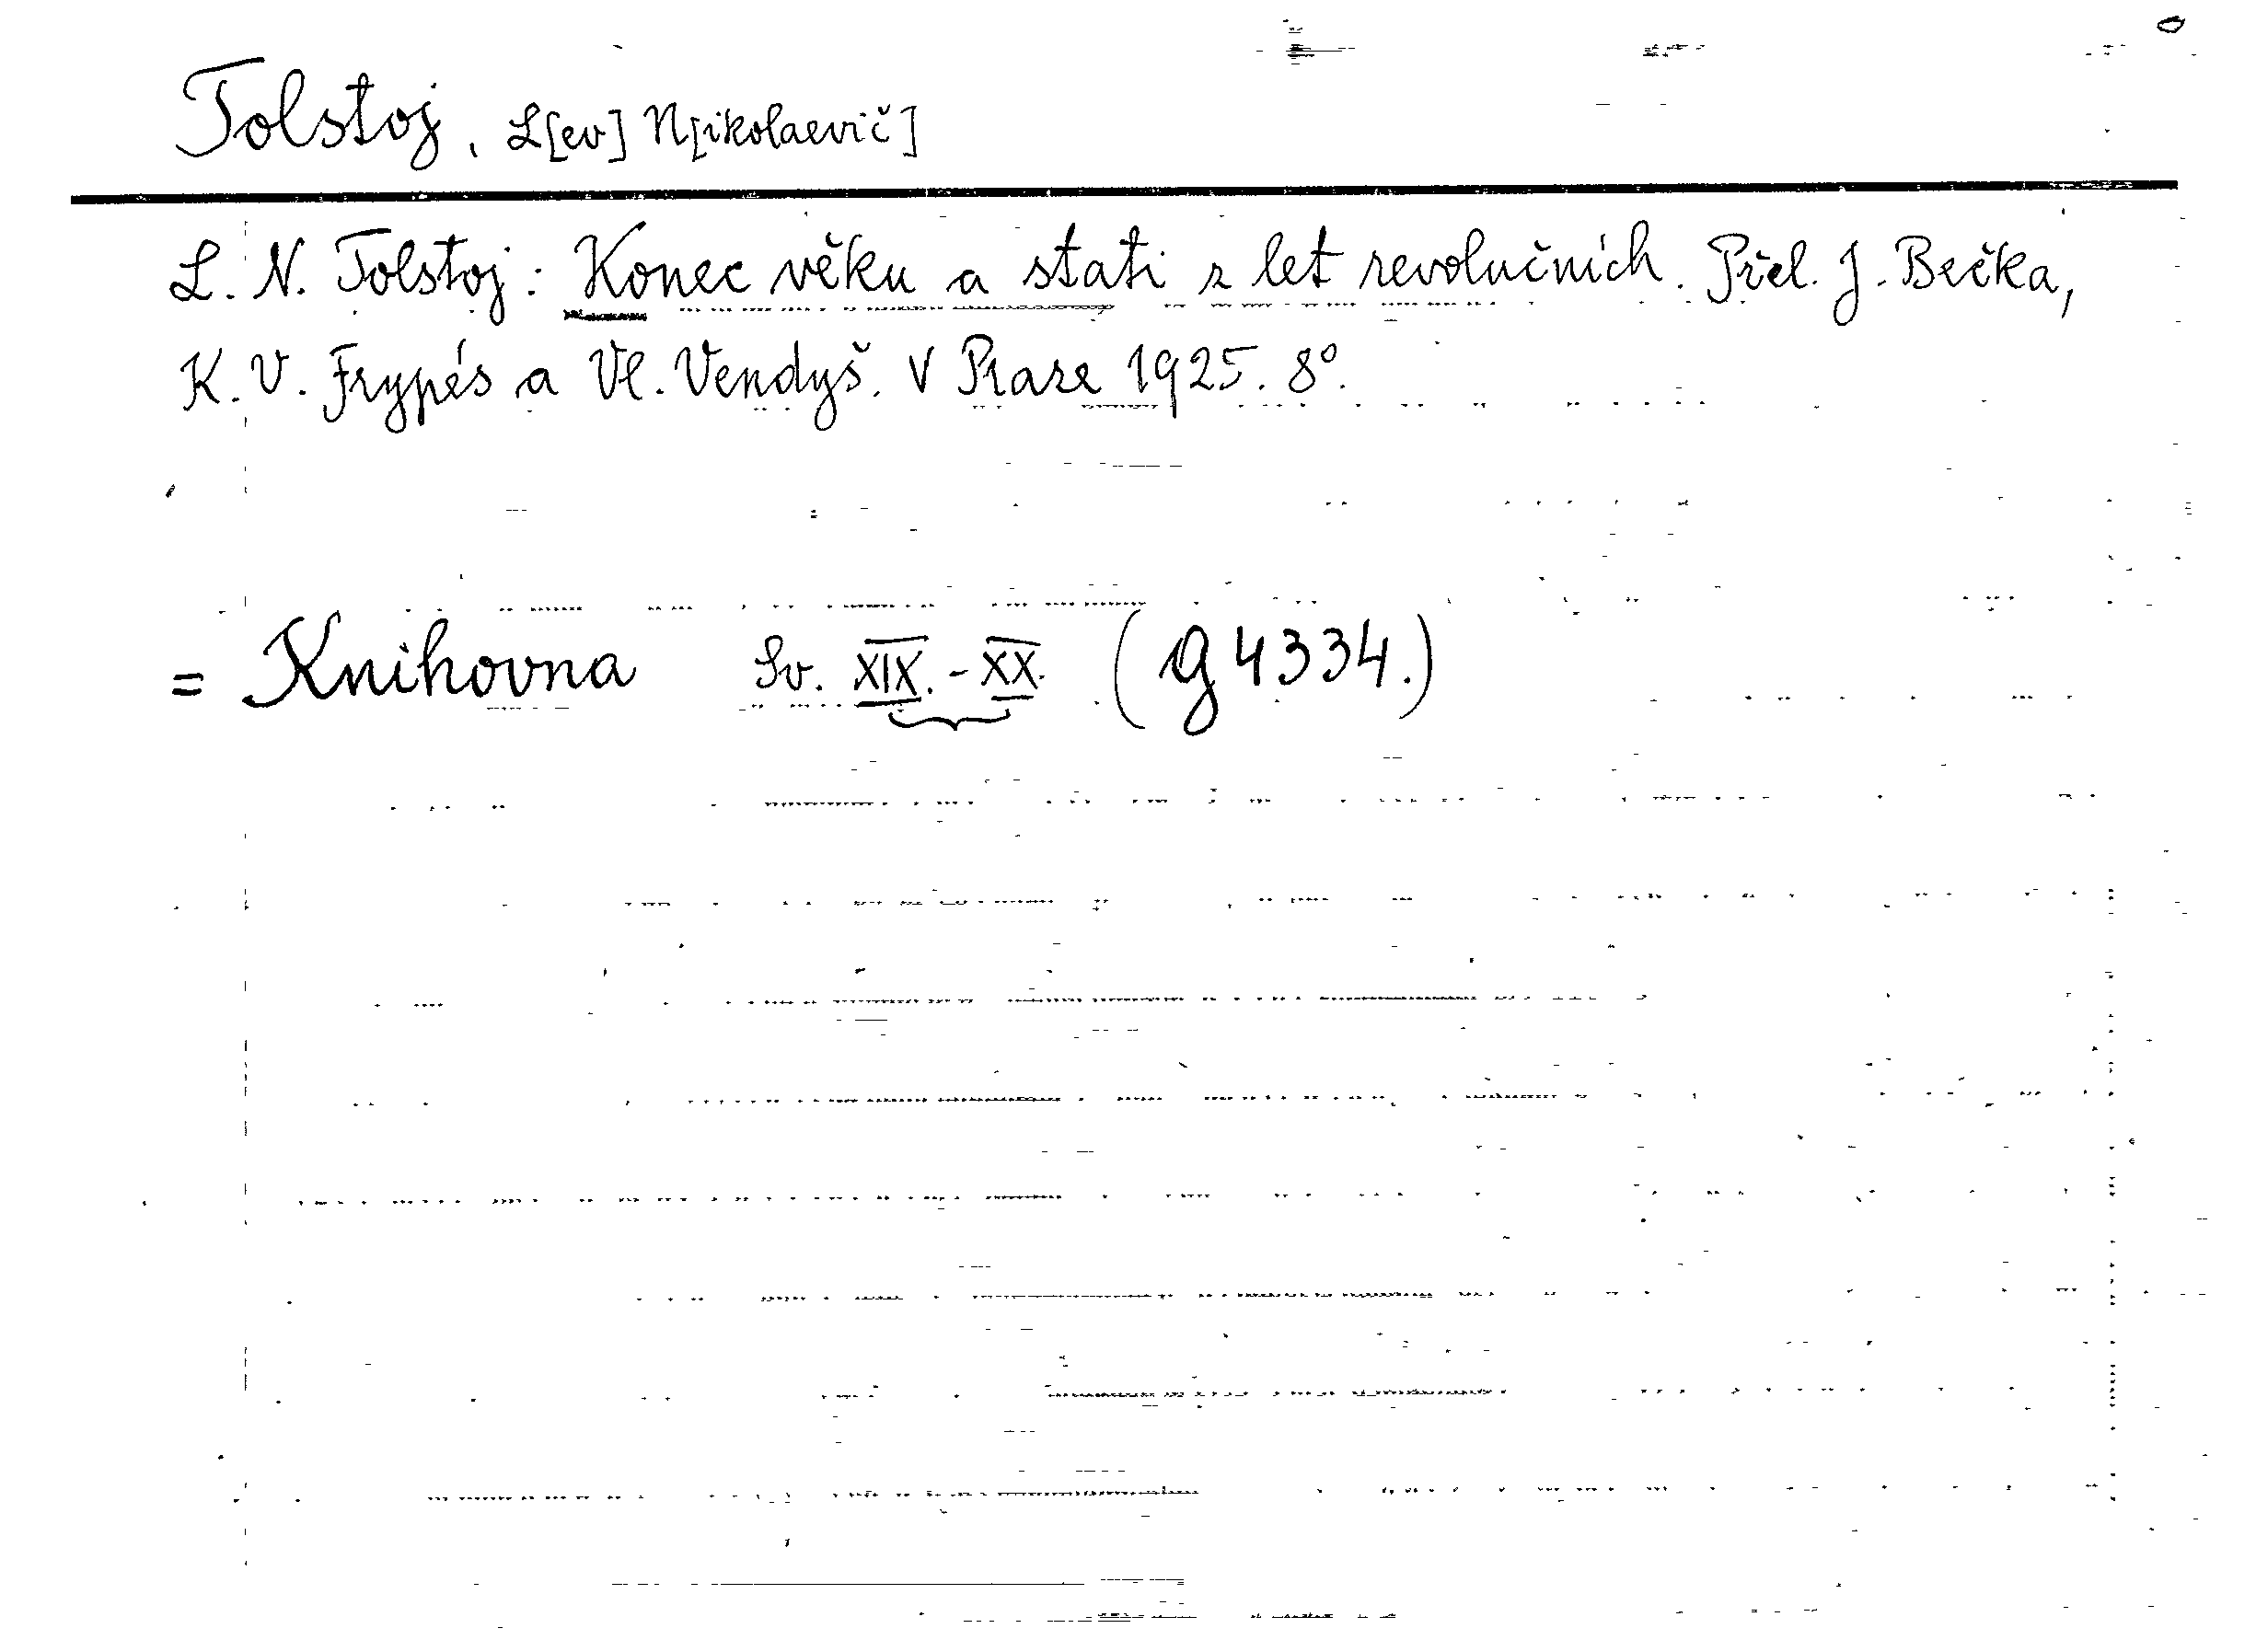 Tolstoj, L[ev] N[ikolaevič]
L. N. Tolstoj: Konec věku a stati z let revolučních. Přel. J. Bečka,
K. V. Frypés a Vl. Vendyš. V Praze 1925. 8°.
= Knihovna Sv. XIX. - XX. (g 4334.)